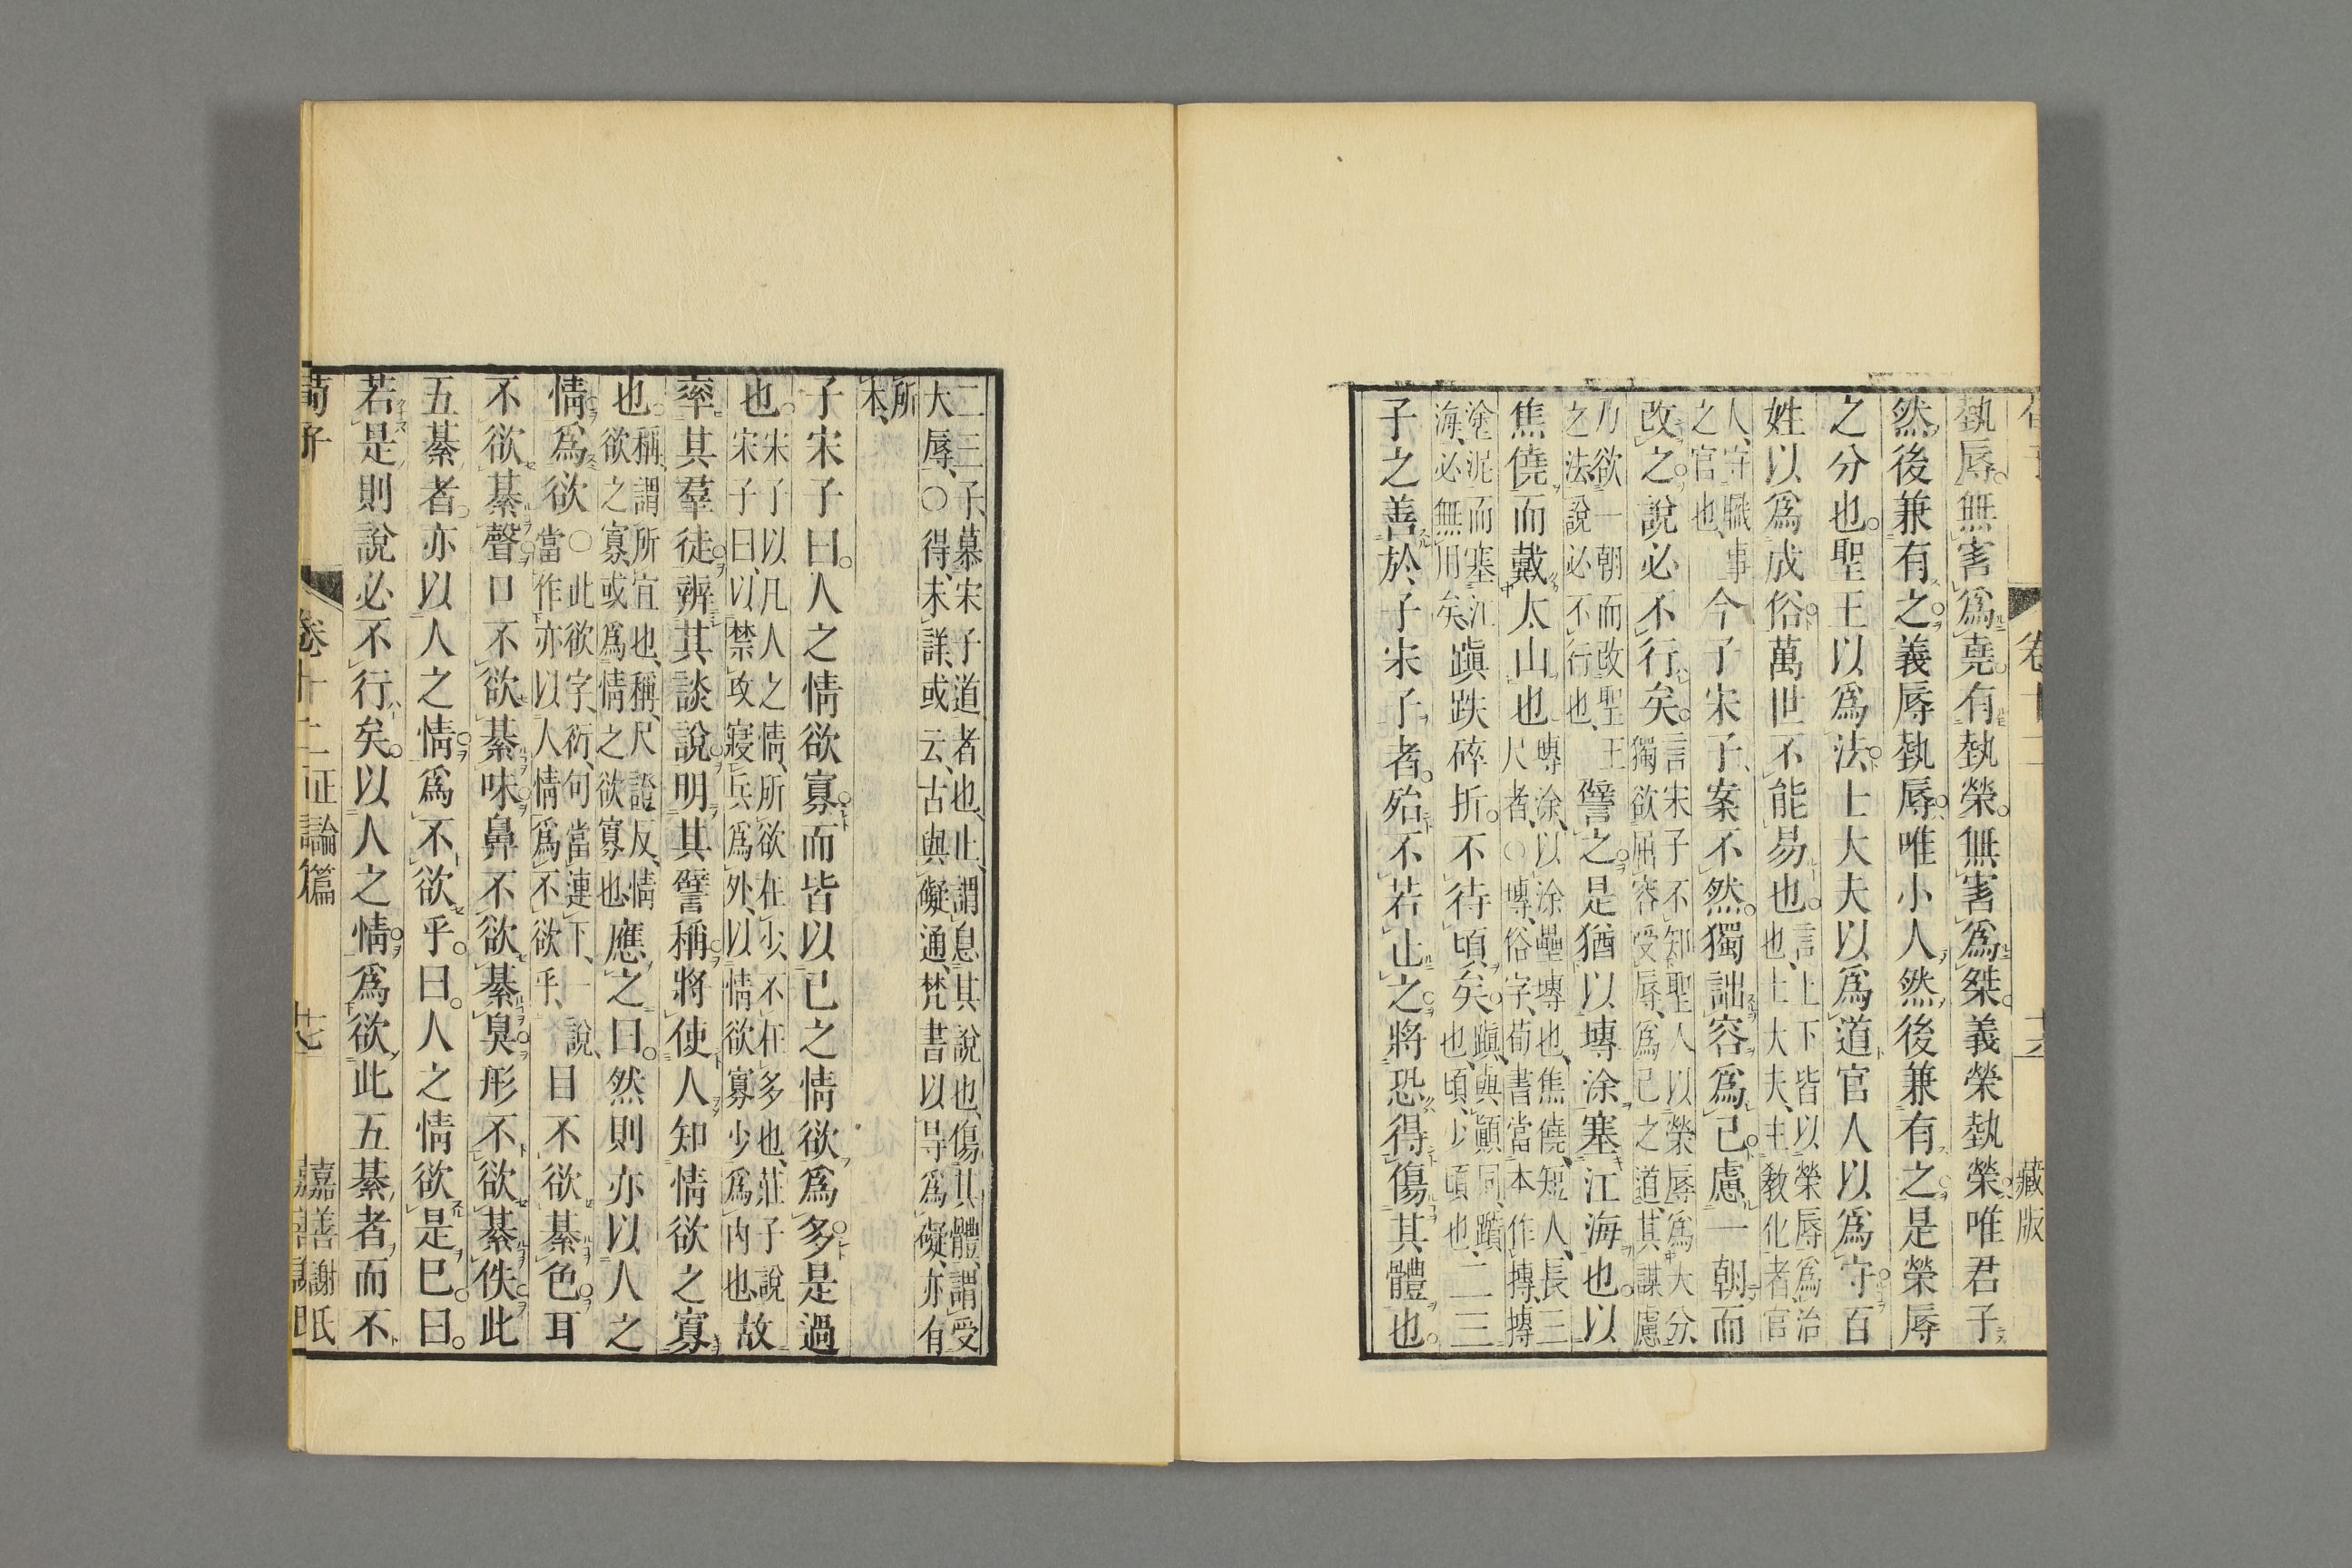 埶辱無害爲堯有埶榮無害爲桀義榮埶榮唯君子
然後兼有之義辱埶辱唯小人然後兼有之是榮辱
之分也聖王以爲法士大夫以爲道官人以爲守百
姓以爲成俗萬世不能易也言上下皆以榮辱爲治也、士大夫、主敎化者、官
人、守職事之官也、今子宋子、案不然獨詘容爲己慮一朝而
改之說必不行矣言宋子不知聖人以榮辱爲大分、獨欲屈容受辱、爲己之道、其謀慮
乃欲一朝而改聖王之法、說必不行也、譬之是猶以塼涂塞江海也以
焦僥而戴太山也塼涂、以涂壘塼也、焦僥、短人、長三尺者、○塼、俗字、荀書當本作摶、摶
塗泥而塞江海、必無用矣、蹎跌碎折不待頃矣蹎、與顚同、躓也、頃、少頃也、二三
子之善於子宋子者殆不若止之將恐得傷其體也
二三子、慕宋子道者也、止、謂息其說也、傷其體、謂受大辱、○得、未詳、或云、古與礙通、梵書以㝵爲礙、亦有
所本、
子宋子曰人之情欲寡而皆以己之情欲爲多是過
也宋子以凡人之情、所欲在少、不在多也、莊子說宋子曰、以禁攻寢兵爲外、以情欲寡少爲內也、故
率其羣徒辨其談說明其譬稱將使人知情欲之寡
也稱、謂所宜也、稱、尺證反、情欲之寡、或爲情之欲寡也、應之曰然則亦以人之
情爲欲○此欲字、衍、句當連下、一說、當作亦以人情爲不欲乎、目不欲綦色耳
不欲綦聲口不欲綦味鼻不欲綦臭形不欲綦佚此
五綦者亦以人之情爲不欲乎曰人之情欲是已曰
若是則說必不行矣以人之情爲欲此五綦者而不
荀子 卷十二 正論篇 十七 嘉善謝氏
卷十二 十六 藏版